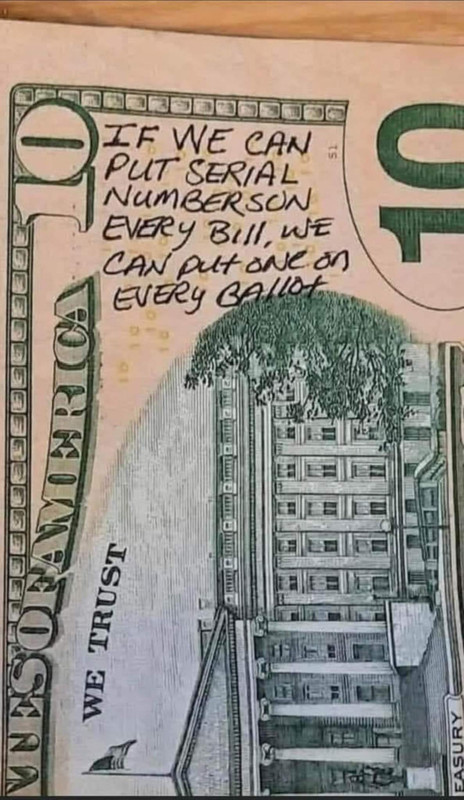 IF WE CAN
PUT SERIAL
NUMBERS ON
EVERY BILL, WE
CAN PUT ONE ON
EVERY BALLOT
10
10
51
10 10
10 10
10
ES OF AMERICA
WE TRUST
EASURY